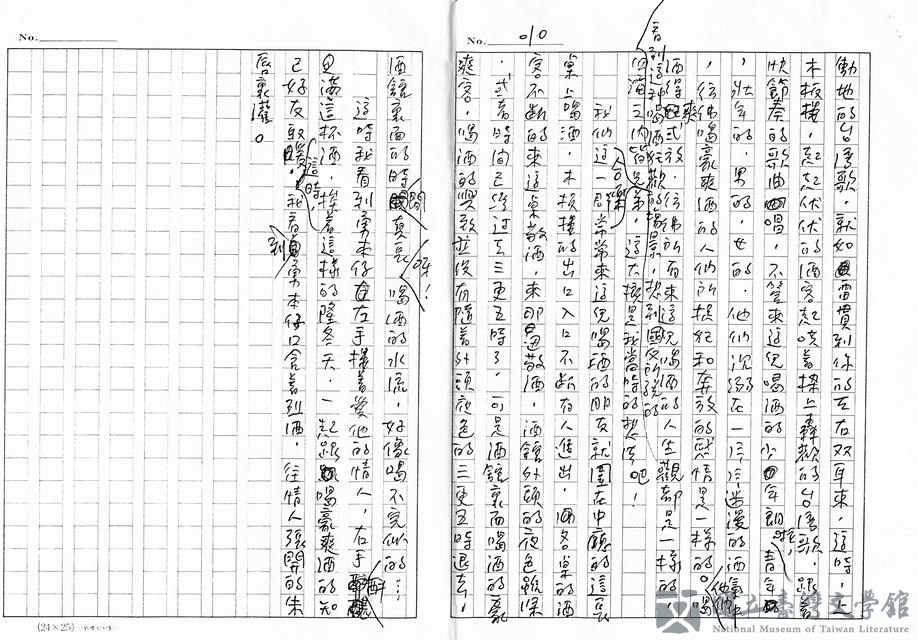 No. 010
動地的台灣歌，就如雷貫到你的左右双耳來，這時，上
木板樓，起起伏伏的酒客起哄着樓上轟歡的台灣歌，跟着
快節奏的歌曲唱，不管來這兒喝酒的少年郎啦，青年的
，壯年的，男的，女的，他們沉溺在一片瀰漫的酒氣中
，彷彿喝豪爽酒的人們所撩起和奔放的感情是一樣的。喝
酒得爽式放，彷彿所有來這兒喝酒的人生觀都是一樣的
看到這种喝酒狂歡的場景，想到國父所說的
四海之內皆兄弟，這大概是我當時的想法吧！
我們這一夥常常來這兒喝酒的朋友就圍在中廳的這裏
桌上喝酒，木板樓的出口入口不斷有人進出，酒客桌的酒
客不斷的來這桌敬酒，來那邊敬酒，酒館外頭的夜色雖深
，或者時間已經過去三更五時了，可是酒館裏面喝酒的豪
爽客，喝酒的興致並沒有隨着外頭夜色的三更五時退去，
No.
酒館裏面的時間真長呀！喝酒的水流，好像喝不完似的…
這時我看到勇本仔在左手摟着愛他的情人，右手斟
滿這杯酒，挨着這樣的隆冬天，一起跟喝豪爽酒的知
己好友取暖，這時，我看到勇本仔口含着烈酒，往情人張開的朱
唇裏灌。
(24×25)
國立臺灣文學館
National Museum of Taiwan Literature